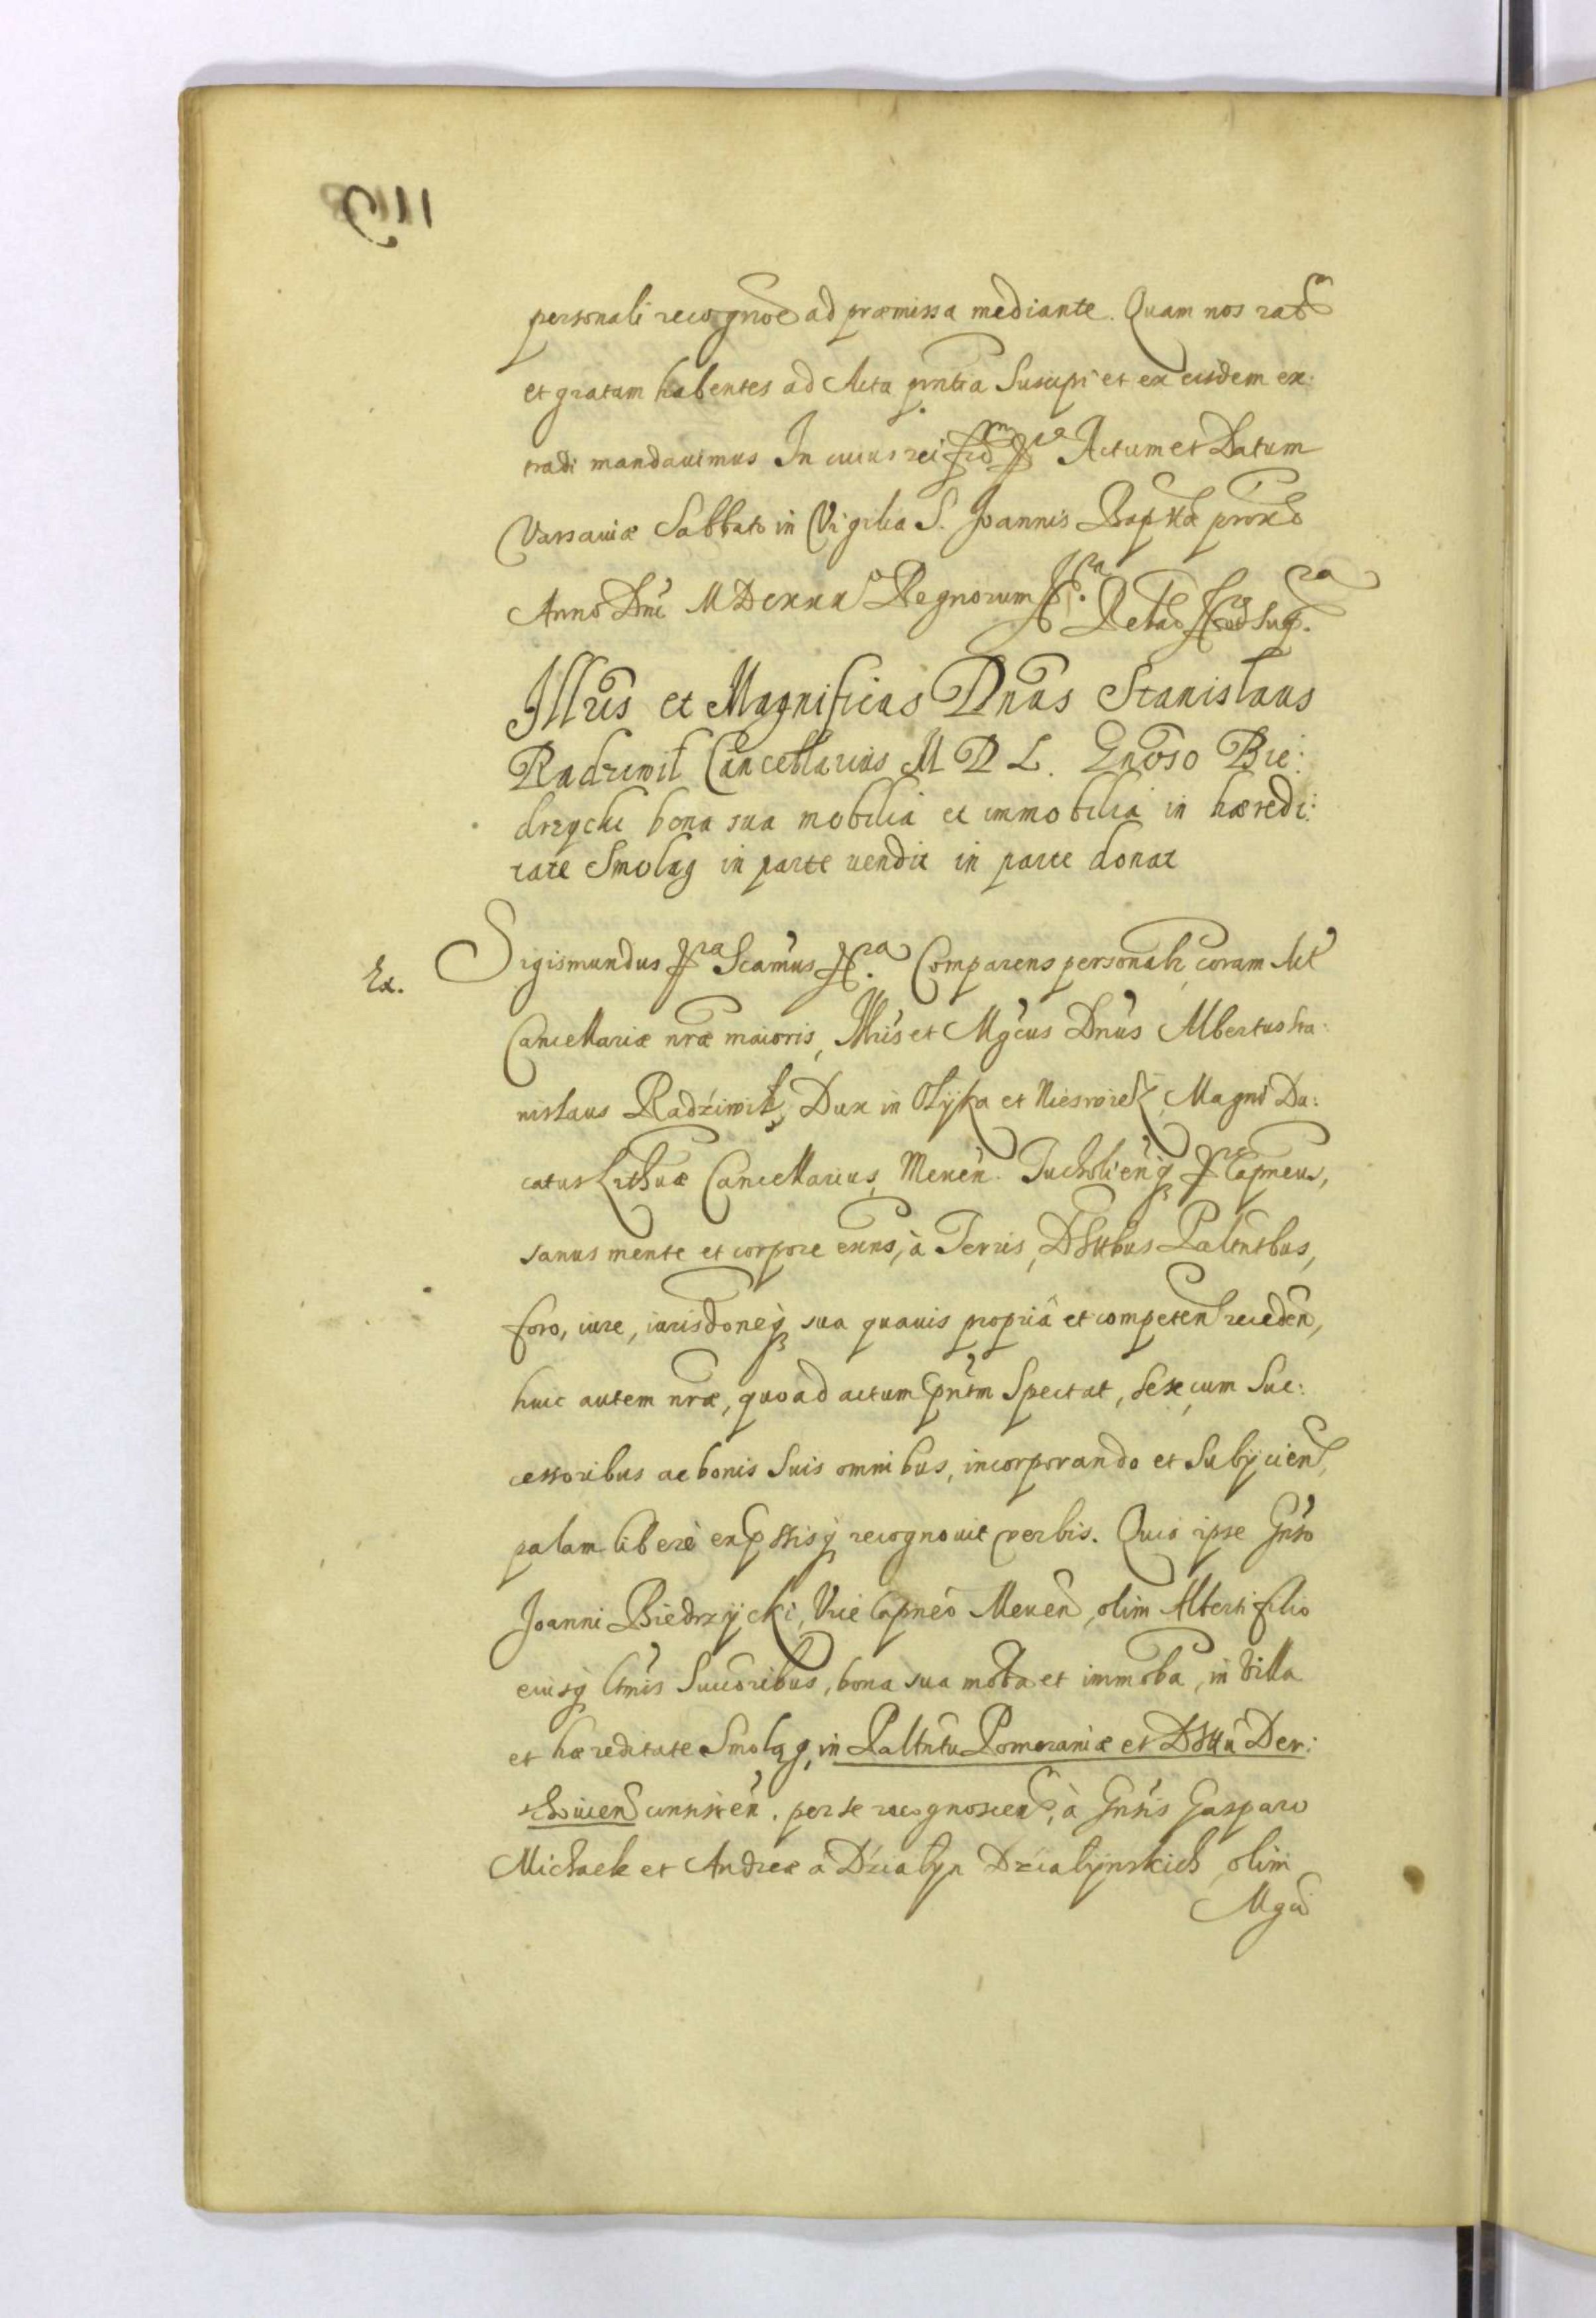 personali recognõe ad præmissa mediante. Quam nos rat̃m
et gratam habentes ad Acta pñtia Suscipi et ex eisdem ex:
tradi mandauimus In cuius rei fid̃m Actum et Datum
Varsauiæ Sabbato in Vigilia S. Joannis Baptæ prox̃o
Anno Dñi MDCXXX° Regnorum Relao
Illris et Magnificus Dnus Stanislaus
Radziwił Cancellarius M D L. Gnoso Bie:
drzycki bona sua mobilia et immobilia in hæredi:
tate Smoląg in parte vendit in parte donat
Ex. Sigismundus Comparens personalr coram Act
Cancellariæ nræ maioris, Illris et Mgcus Dnus Albertus Sta:
nislaus Radźiwił, Dux in Ołyka et Nieswież, Magni Du:
catus Lithuæ Cancellarius, Meuen. Tucholien q Capneus,
sanus mente et corpore exns, à Terris, Dsttbus Paltntbus,
foro, iure, iurisdoneq sua quauis propriâ et competen receden,
huic autem nræ, quoad actum pntm Spectat, sese cum Suc:
cessoribus ac bonis Suis omnibus, incorporando et Subijcien,
palam liberè exprssisq recognouit verbis. Quia ipse Gnso
Joanni Biedrzycki, Vice Capneo Meuen, olim Alberti filio
eiusq ltmis Succoribus, bona sua moba et immoba, in Villa
et hæreditate Smoląg, in Paltntu Pomeraniæ et Dsttu Der:
schouien consisten. per se recognoscen, à Gnsis Gasparo
Michaele et Andrea a Dźiałyn Dźiałyńskich olim
Mgci